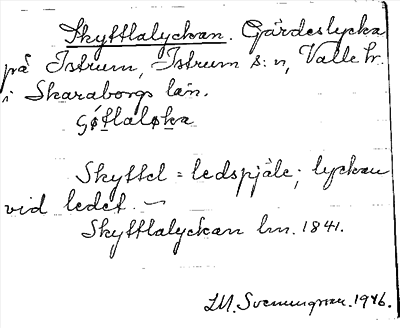 Skyttlalyckan. Gärdeslycka
på Istrum, Istrum s:n, Valle hr.
i Skaraborgs län.
Skyttel = ledspjäle; lyckan
vid ledet. —
Skyttlalyckan lm. 1841.
1946.